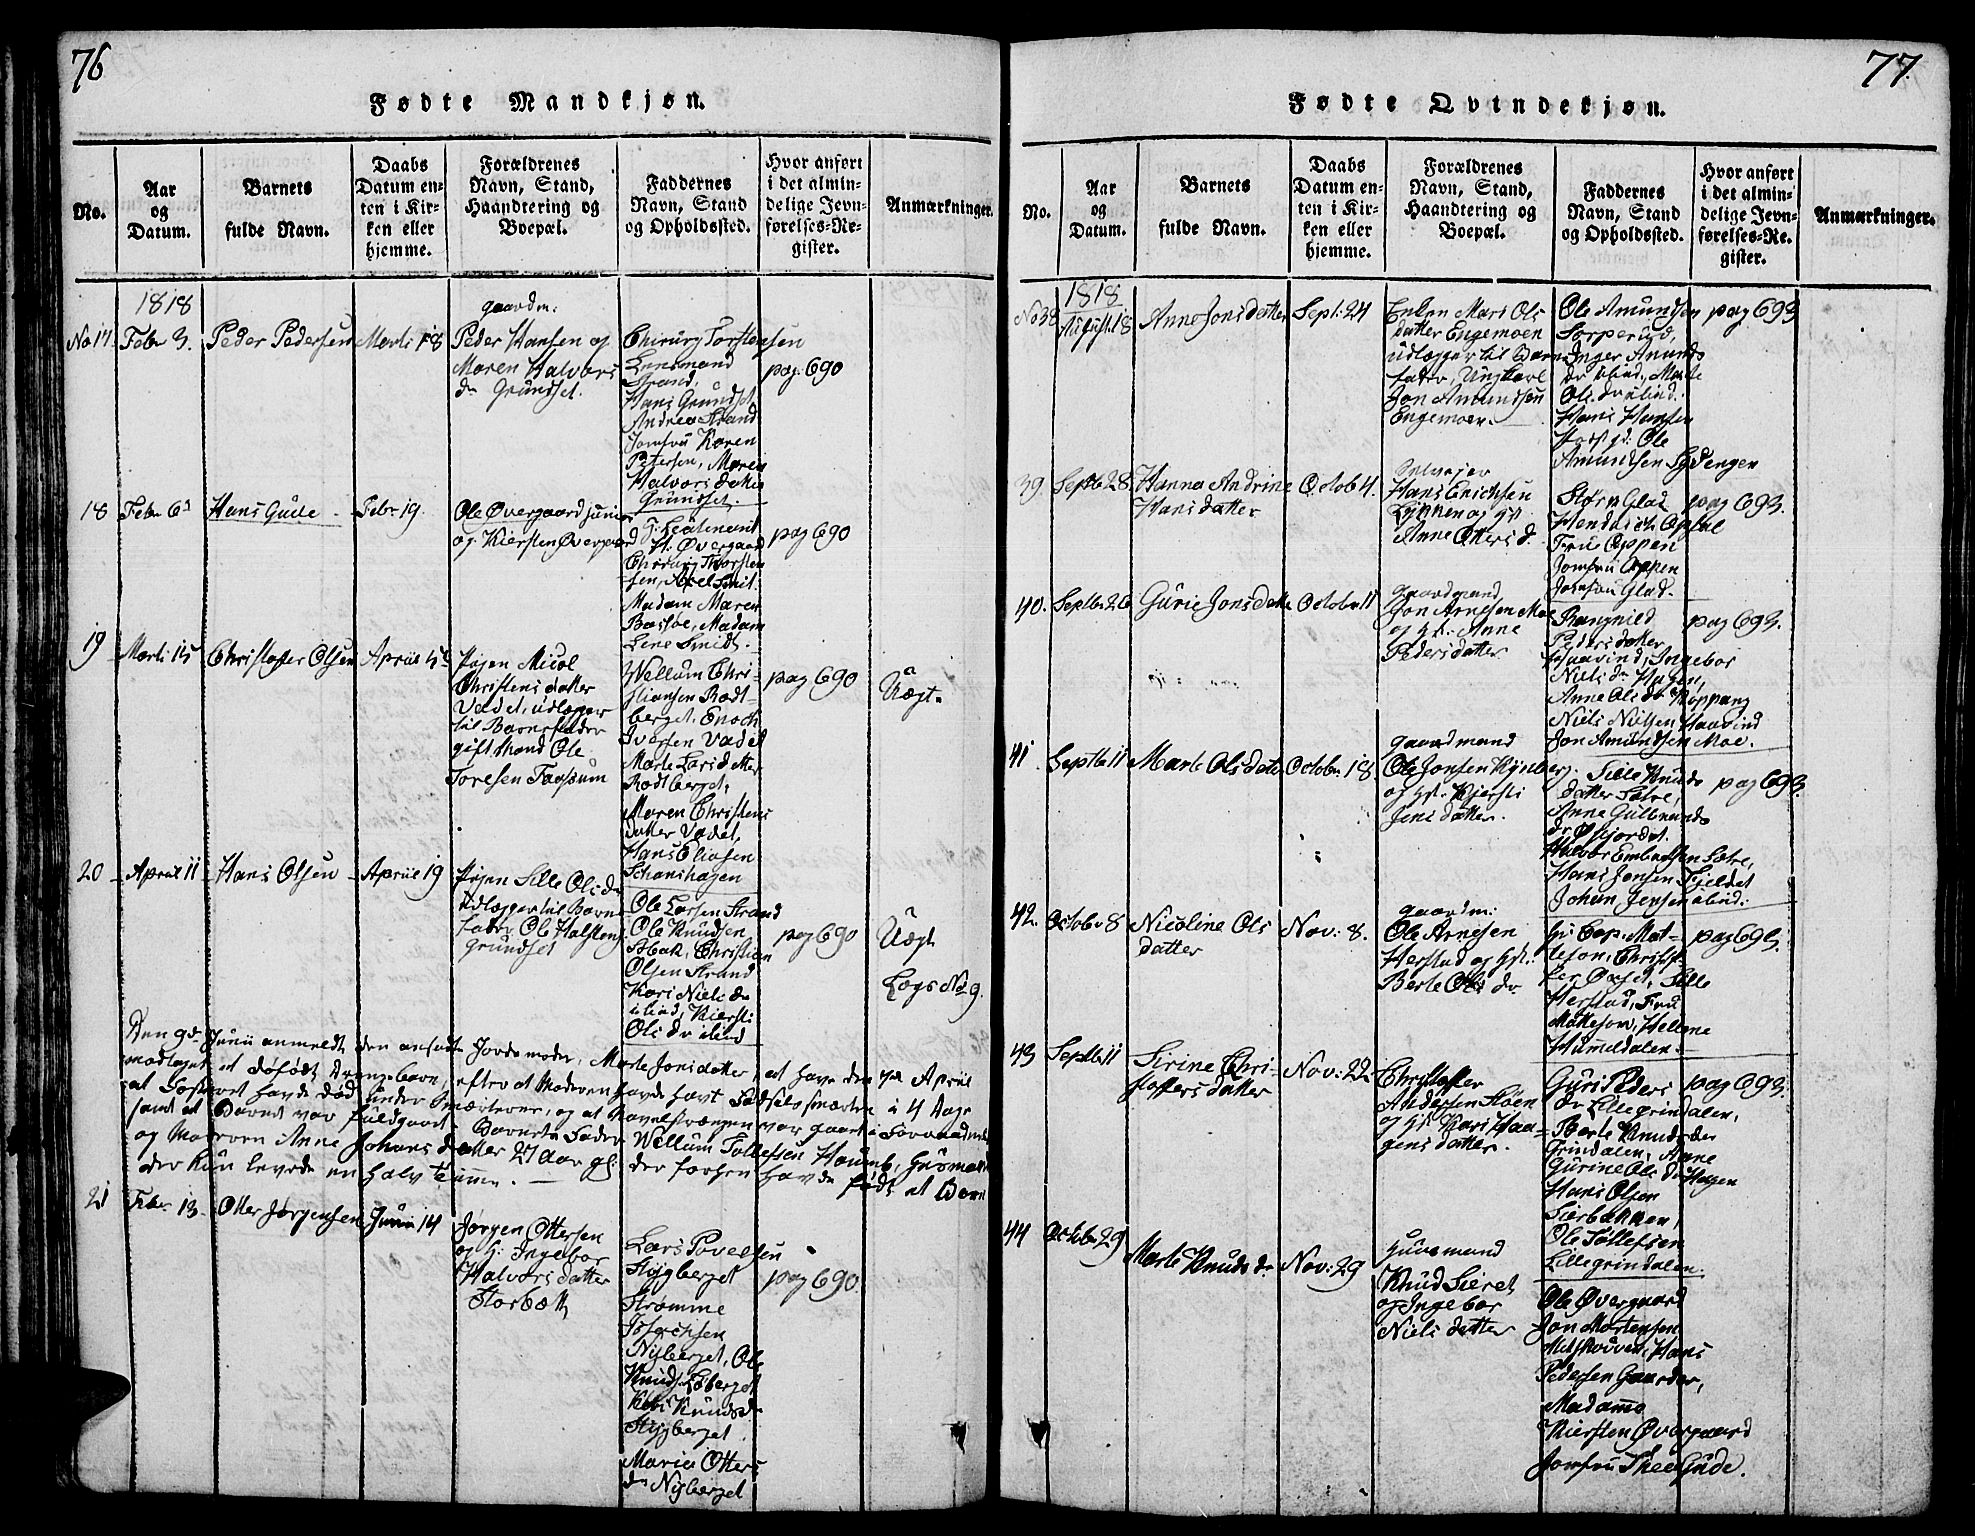 76
Fødte Mandkjøn.
No.
Aar
og
Datum.
Barnets
fulde Navn.
Daabs
Datum en-
ten i Kir-
ken eller
hjemme.
Forældrenes
Navn, Stand,
Haandtering og
Boepæl.
Faddernes
Navn, Stand
og Opholdssted.
Hvor anført
i det almin-
delige Jevn-
førelses-Re-
gister.
Anmærkninger.
1818
No 17.
Febr 3.
Peder Pedersen
Marti 18
gaardm:
Peder Hansen og
Maren Halvors
dr Grundset.
Chirurg Torstensen
Lensmand
Strand,
Hans Grundset
Andrea Strand
Jomfru Karen
Petersen, Maren
Halvorsdatter
Grundset.
pag. 690
18
Febr 6
Hans Gude
Febr 19.
Ole Øvergaard junior
og Kiersten Øvergaard
Leutenant
H. Øvergaard
Chirurg Thorsten-
sen, Axel Smit
Madam Maren
Bassøe, Madam
Lene Smidt.
pag 690
19
Marti 15
Christoffer Olsen
April 5
Pigen Micol
Christensdatter
Vadet, udlægger
til Barnefader
gift Mand Ole
Toresen Fossum
Wellum Chri-
stiansen Rødt-
berget, Enoch
Iversen Vadet
Marte Larsdatter
Rodtberget,
Maren Christens
datter Vadet,
Hans Eliasen
Schanshagen
pag 690
Uægt.
20
April 11
Hans Olsen
April 19
Pigen Sille Olsdr
udlægger til Barne
fader Ole Halstens:
Grundset
Ole Larsen Strand
Ole Knudsen
Bak, Christian
Olsen Strand
Kari Niels dr
ibid, Kiersti
Ols dr ibid
pag 690
Uægt
Lægs No 9.
Den 9de Junii anmeldte den ansatte Jordemoder, Marte Jonsdatter, at have den 7de April
modtaget et dødfødt Drengebarn, efter at Moderen havde havt Fødselssmerter i 4 Dage
at Fosteret havde død under Smerterne, og at Navelstrængen var gaaet i Forraadnelse
samt at Barnet var fuldgaaet. Barnets Fader Wellum Tollefsen Haugn, Huusmand
og Moderen Anne Johansdatter 27 Aar gl: der forhen havde født et Barn
der kun levede en halv Time.
21
Febr 13.
Otter Jørgensen
Junii 14
Jørgen Ottersen
og H. Ingebor
Halvorsdatter
Storbæk
Lars Povelsen
Stygberget
Strømme
Nyberget, Ole
Knuds. Løberget
Kari Knudsdr
Stygberget.
Maria Otters
dr Nyberget
pag 690.
77.
Fødte Qvindekjøn.
No.
Aar
og
Datum.
Barnets
fulde Navn.
Daabs
Datum en-
ten i Kir-
ken eller
hjemme.
Forældrenes
Navn, Stand,
Haandtering og
Boepæl.
Faddernes
Navn, Stand
og Opholdssted.
Hvor anført
i det almin-
delige Jevn-
førelses-Re-
gister.
Anmærkninger.
1818
No 38
August. 18
Anne Jonsdatter
Sept: 24
Enken Mari Ols
datter Engemoen
udlægger til Barne
fader, Ungkarl
Jon Amundsen
Engemoen.
Ole Amundsen
Torperud,
Inger Amunds
dr ibid, Marte
Ols. dr ibid.
Hans Hansen
Ole
Amundsen Sydengen
pag 693
39
Septb 28.
Hanna Andrine
Hansdatter
Octob 4.
Hans Erichsen
Lykken og Hst
Anne Otters d.
Størn Glad
Hendrich Oppen
Frue Oppen
Jomfru Oppen
Jomfru Glad.
pag 693.
40.
Septb. 26
Gurie Jonsdatter
Octobr 11
gaardmand
Jon Arnesen Moe
og Hst. Anne
Pedersdatter
Rangnild
Pedersdatter
Haavind, Ingebor
Niels dr Hagen,
Anne Ols dr Koppang
Niels Nielsen Haavind
Jon Amundsen Moe.
pag 693.
41
Septb 11
Marte Olsdatter
Octobr 18
gaardmand
Ole Jonsen Rynberg
og Hst. Kjersti
Jensdatter.
Sille Knuds
datter Sætre,
Anne Gulbrands
dr Øfjordet.
Halvor Embretsen Sætre,
Hans Jonsen Fjeldet
Johan Jensen ibid.
pag 693.
42.
Octobr 8
Nicoline Ols
datter
Nov: 8.
gaardm:
Ole Arnesen
Herstad og Hst.:
Berte Ols dr
Hr Cap: Mat-
teson, Christof-
fer Øxset, Sille
Herstad, Fru
Matteson, Hellene
Hummeldalen.
pag 693.
43
Septb 11
Sirine Chri-
stoffersdatter
Nov: 22
Christoffer
Andersen Floen
og Hst. Kari Haa-
gensdatter.
Guri Peders
dr Lillegrindalen,
Berte Knudsdr
Grindalen, Anne
Gurine Ols dr Hagen
Hans Olsen
Sierbakken,
Ole Tollefsen
Lillegrindalen.
pag 693.
44
Octobr 29
Marte Knuds dr
Nov: 29
Huusmand
Knud Sieret
og Ingebor
Nielsdatter
Ole Øvergaard
Jon Mortensen
Hans
Pedersen Gaarder,
Madamme
Kiersten Øvergaard
Jomfru Thea Gude.